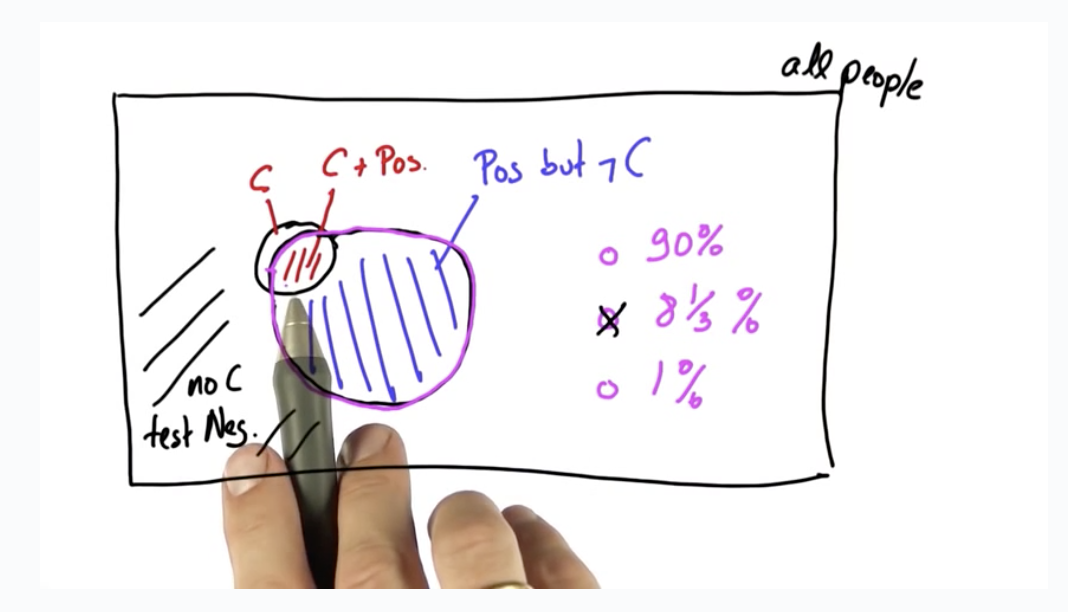 all people
C
C + Pos.
Pos but ¬ C
90%
8 1/3 %
1%
no C
test Neg.